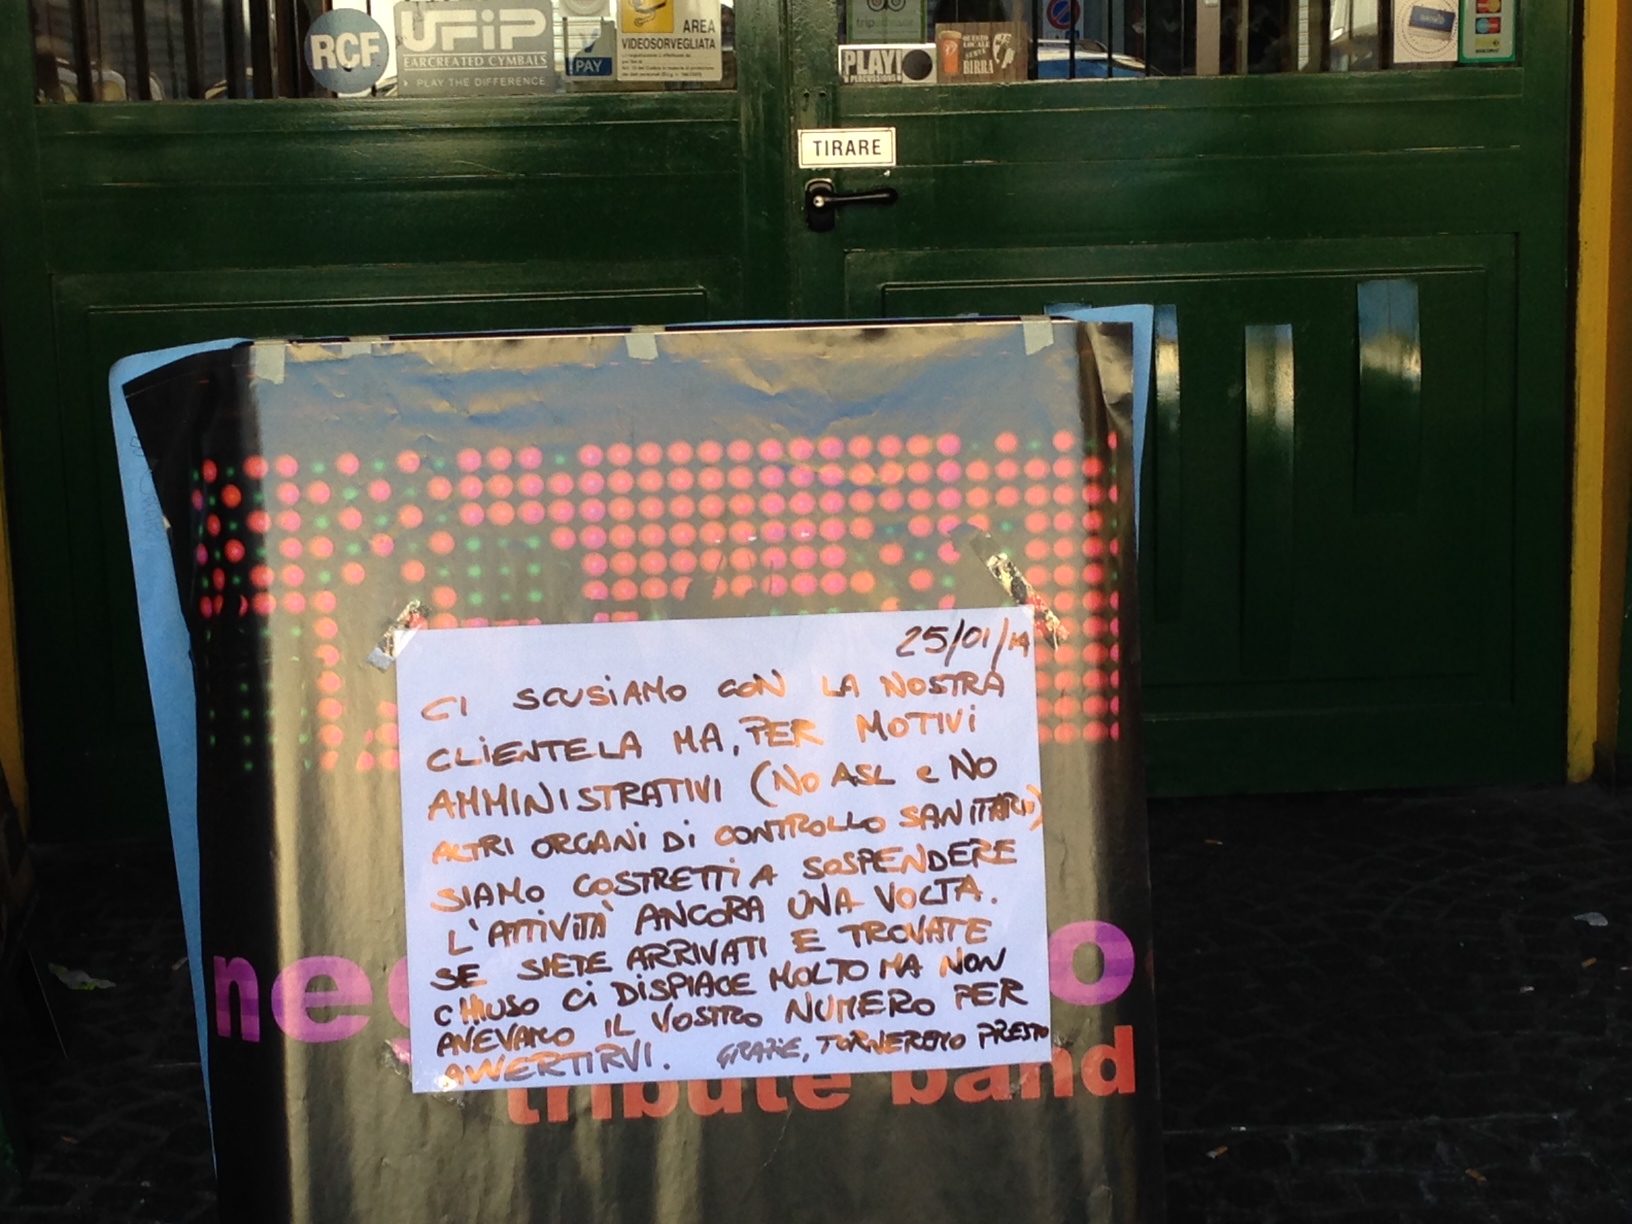 RCF
UFiP
EARCREATED CYMBALS
PLAY THE DIFFERENCE
PAY
AREA
VIDEOSORVEGLIATA
PLAY!
PERCUSSIONS
QUESTO
LOCALE
SERVE
BIRRA
TIRARE
25/01/14
CI SCUSIAMO CON LA NOSTRA
CLIENTELA MA, PER MOTIVI
AMMINISTRATIVI (NO ASL e NO
ALTRI ORGANI DI CONTROLLO SANITARIO)
SIAMO COSTRETTI A SOSPENDERE
L'ATTIVITÀ ANCORA UNA VOLTA.
SE SIETE ARRIVATI E TROVATE
CHIUSO CI DISPIACE MOLTO MA NON
AVEVAMO IL VOSTRO NUMERO PER
AVVERTIRVI. GRAZIE, TORNEREMO PRESTO
ne o
tribute band